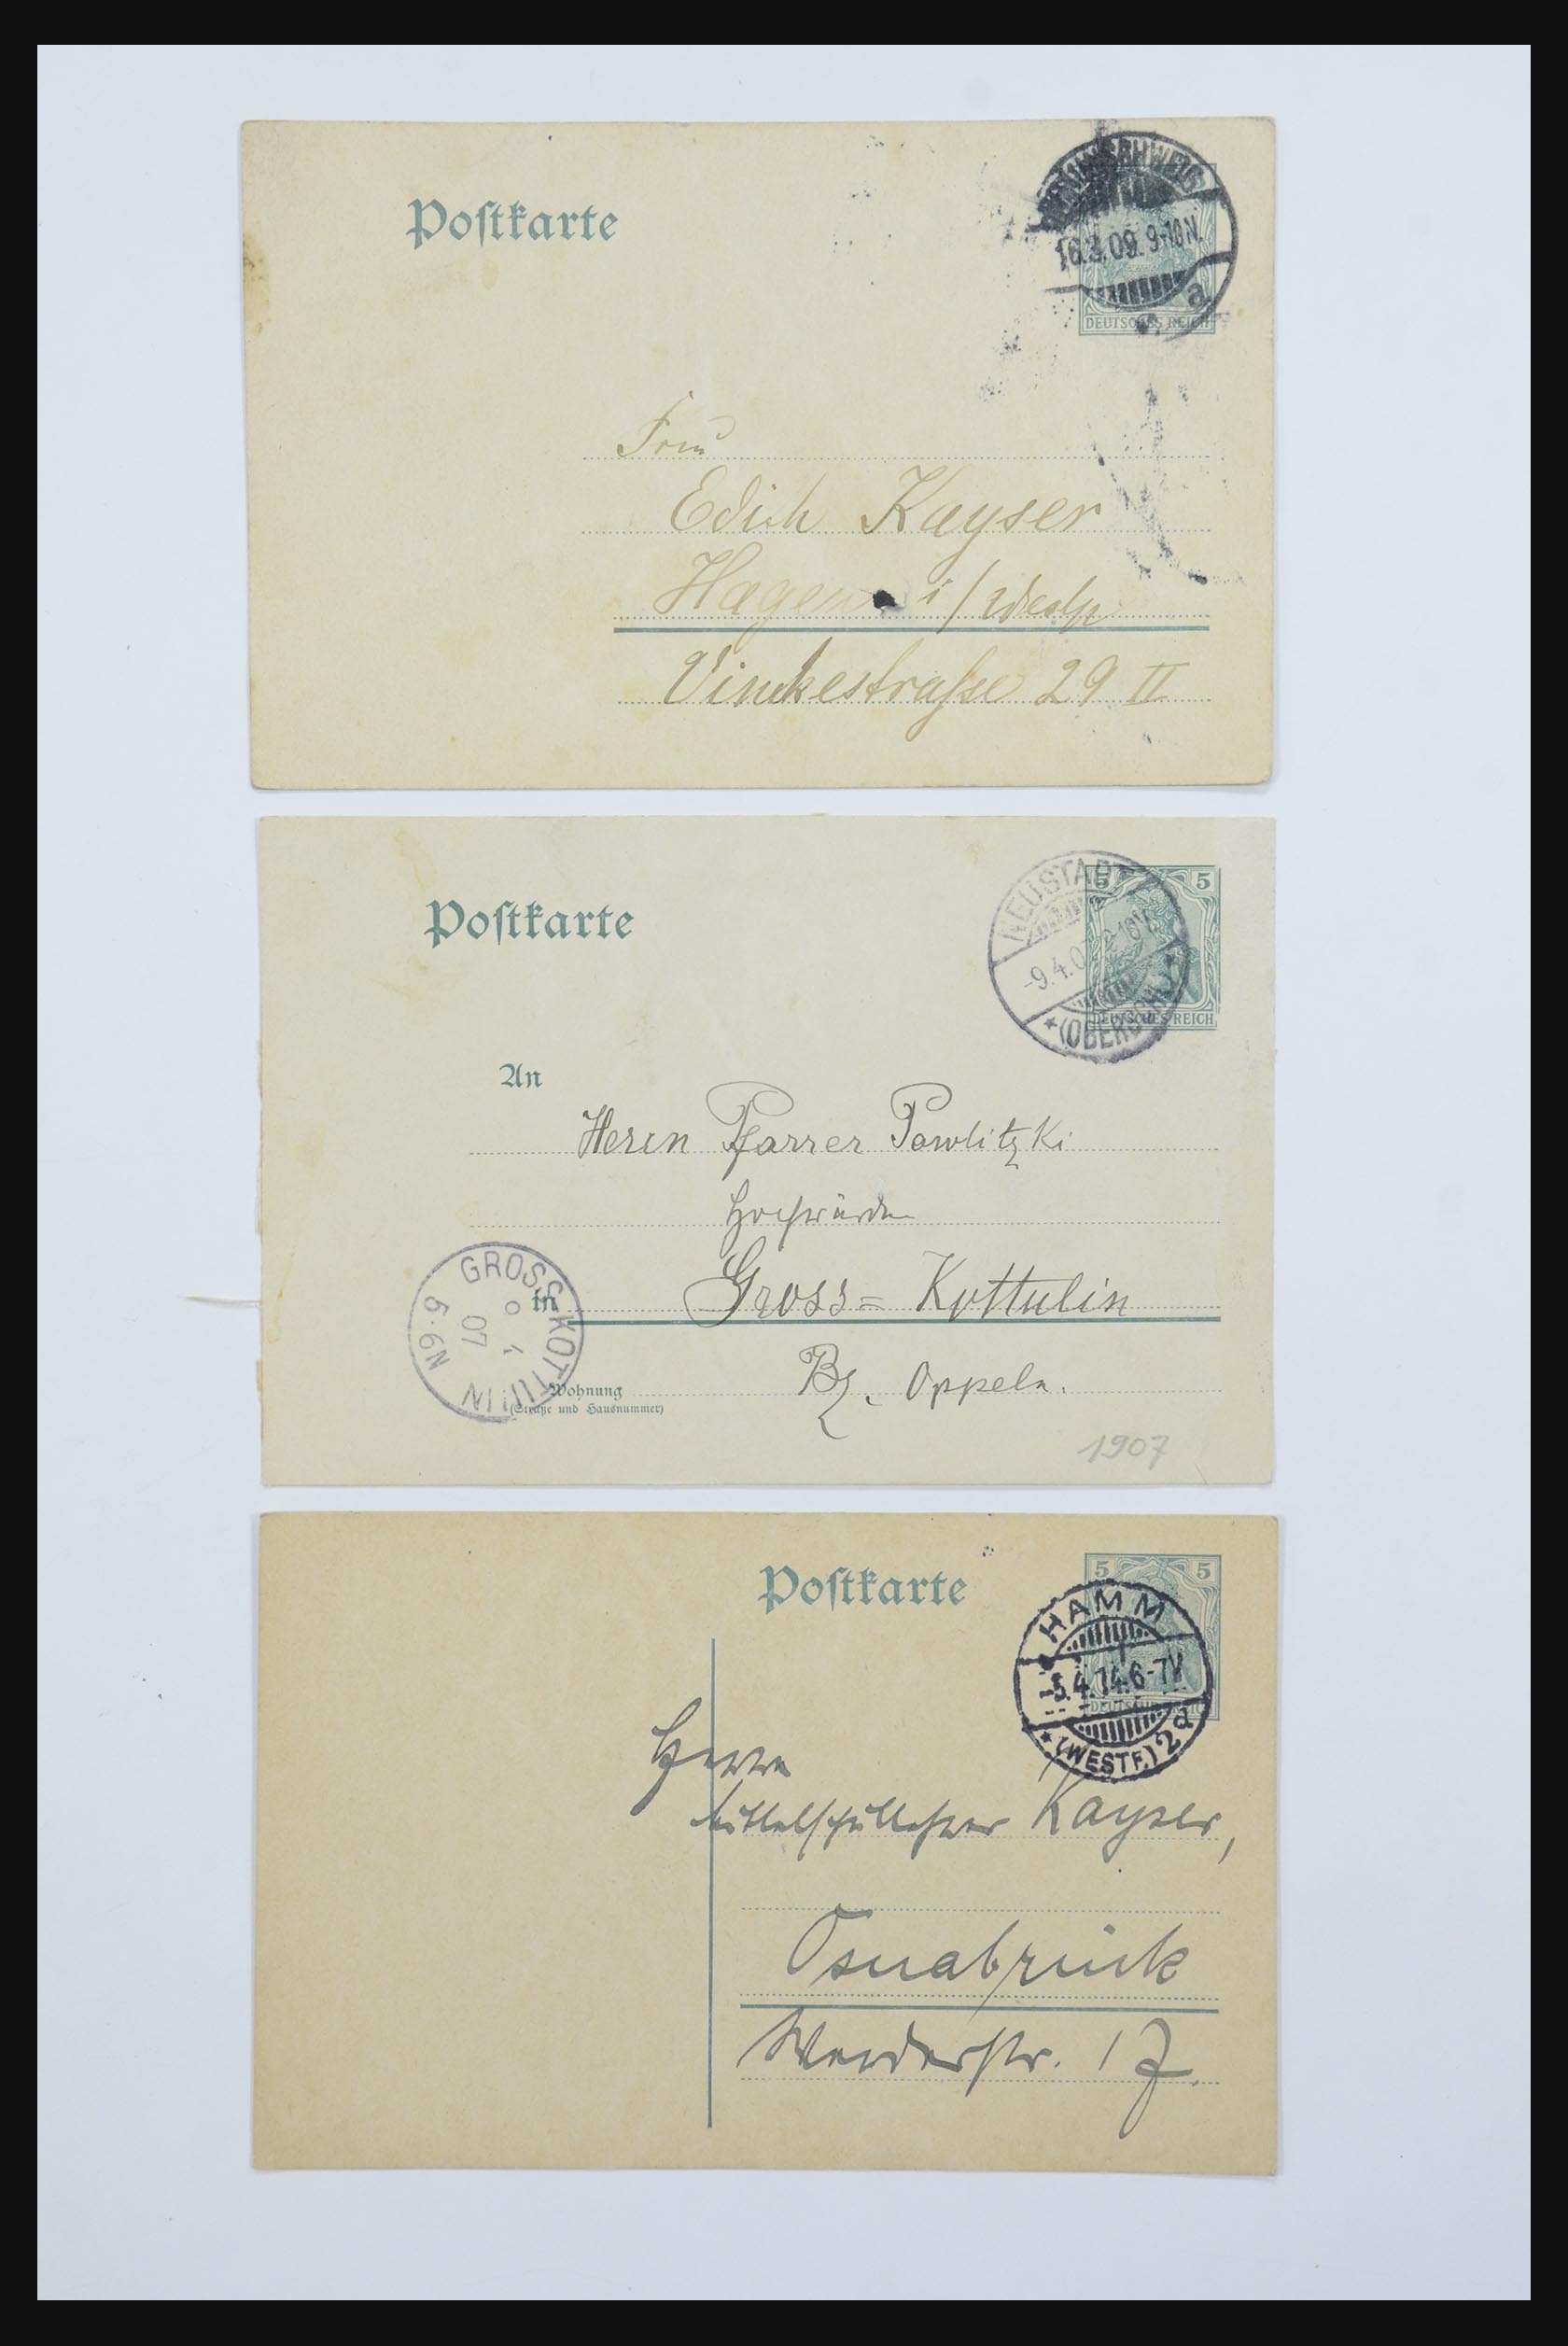 Postkarte
BRAUNSCHWEIG
16.3.09. 9-10N.
a
DEUTSCHES REICH
Frau
Edith Kayser
Hagen i/Westf
Vinckestraße 29 II
Postkarte
5 5
NEUSTADT
-9.4.07
* (OBERSCHL.) *
DEUTSCHES REICH
An
Herrn Pfarrer Pawlitzki
Hochwürden
in Gross-Kottulin
GROSS KOTTULIN
07
5-6N
Wohnung
(Straße und Hausnummer)
Bz. Oppeln.
1907
Postkarte
5 5
HAMM
-5.4.14.6-7V
* (WESTF.) 2d
Herrn
Mittelschullehrer Kayser,
Osnabrück
Werderstr. 17.